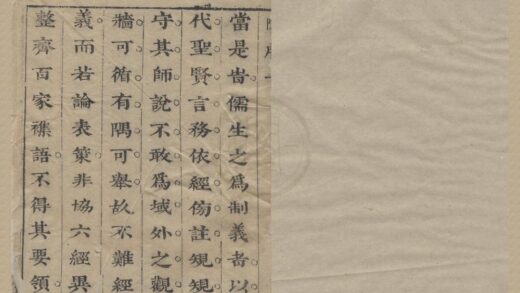 當是旹儒生之爲制義者以
代聖賢言務依經傍註規規
守其師說不敢爲域外之觀
牆可循有隅可舉故不難經
義而若論表策非協六經異
整齊百家襍語不得其要領